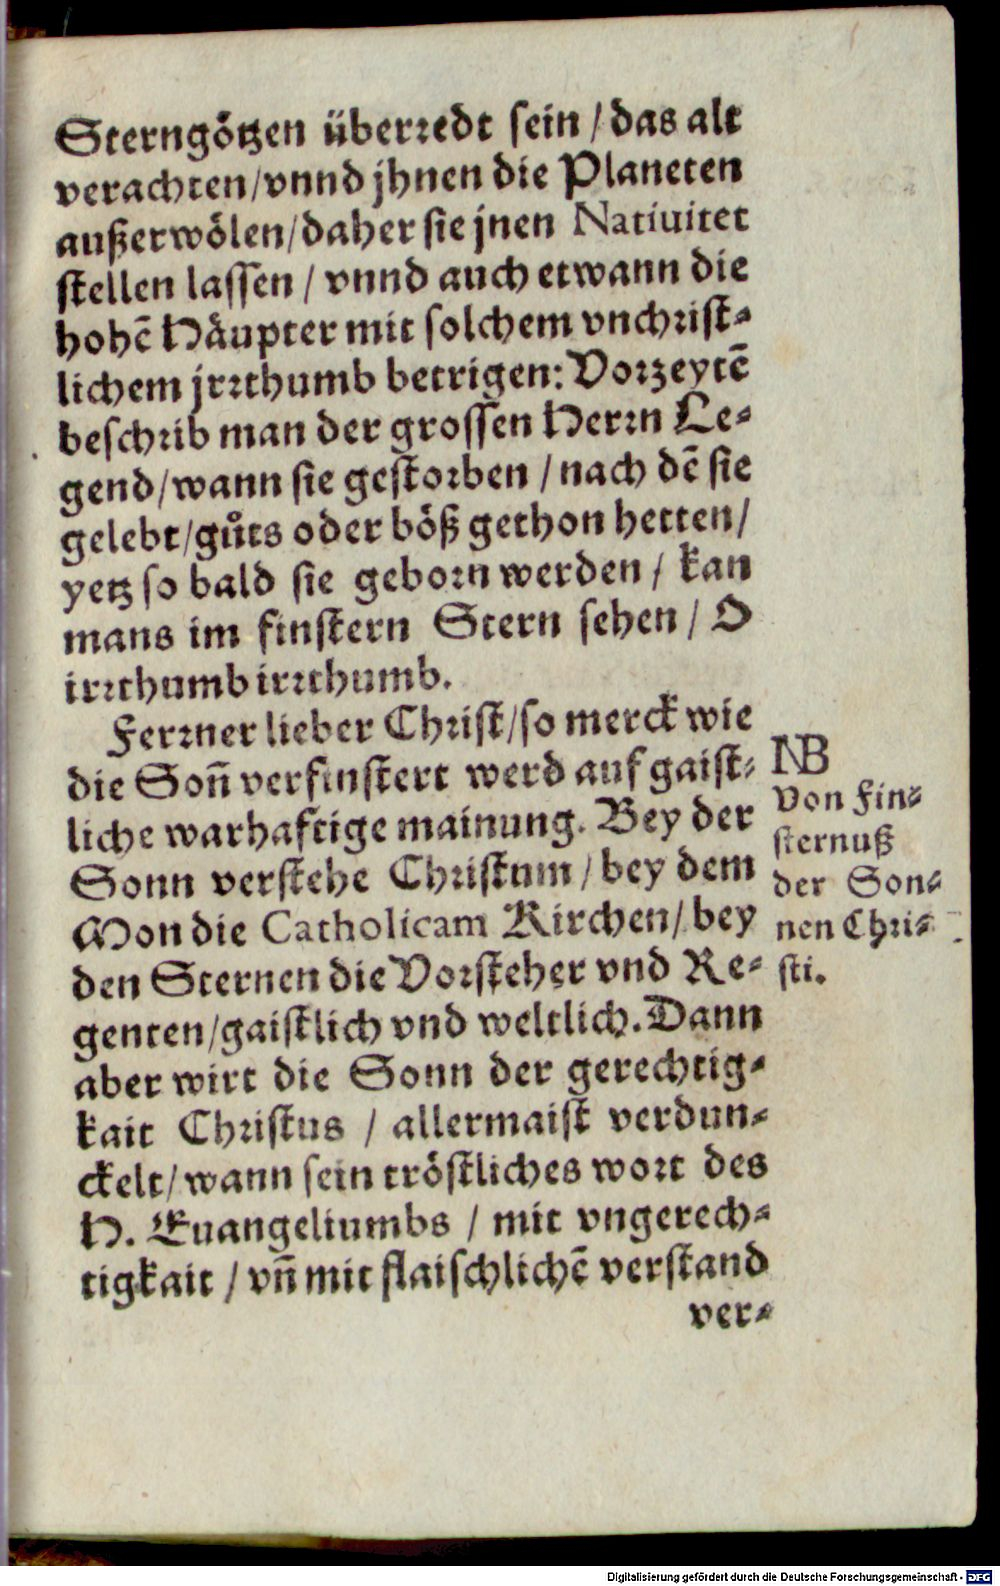 Sterngötzen überredt sein / das alt
verachten/vnnd jhnen die Planeten
außerwölen/daher sie jnen Natiuitet
stellen lassen / vnnd auch etwann die
hohē Häupter mit solchem vnchrist-
lichem jrrthumb betrigen: Vorzeytē
beschrib man der grossen Herrn Le-
gend/wann sie gestorben / nach dē sie
gelebt/gůts oder böß gethon hetten/
yetz so bald sie geborn werden / kan
mans im finstern Stern sehen / O
irrthumb irrthumb.
Ferrner lieber Christ/so merck wie
die Soñ verfinstert werd auf gaist-
liche warhaftige mainung. Bey der
Sonn verstehe Christum / bey dem
Mon die Catholicam Kirchen/ bey
den Sternen die Vorsteher vnd Re-
genten/gaistlich vnd weltlich. Dann
aber wirt die Sonn der gerechtig-
kait Christus / allermaist verdun-
ckelt/wann sein tröstliches wort des
H. Euangeliumbs / mit vngerech-
tigkait / vñ mit flaischlichē verstand
ver-
NB
Von Fin-
sternuß
der Son-
nen Chri-
sti.
Digitalisierung gefördert durch die Deutsche Forschungsgemeinschaft - DFG